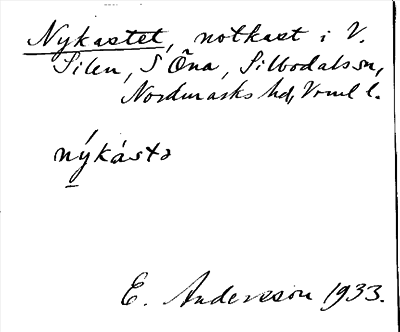 Nykastet, notkast i V.
Silen, S Õna, Silbodals sn,
Nordmarks hd, Vrml l.
nýkásta
E. Andersson 1933.